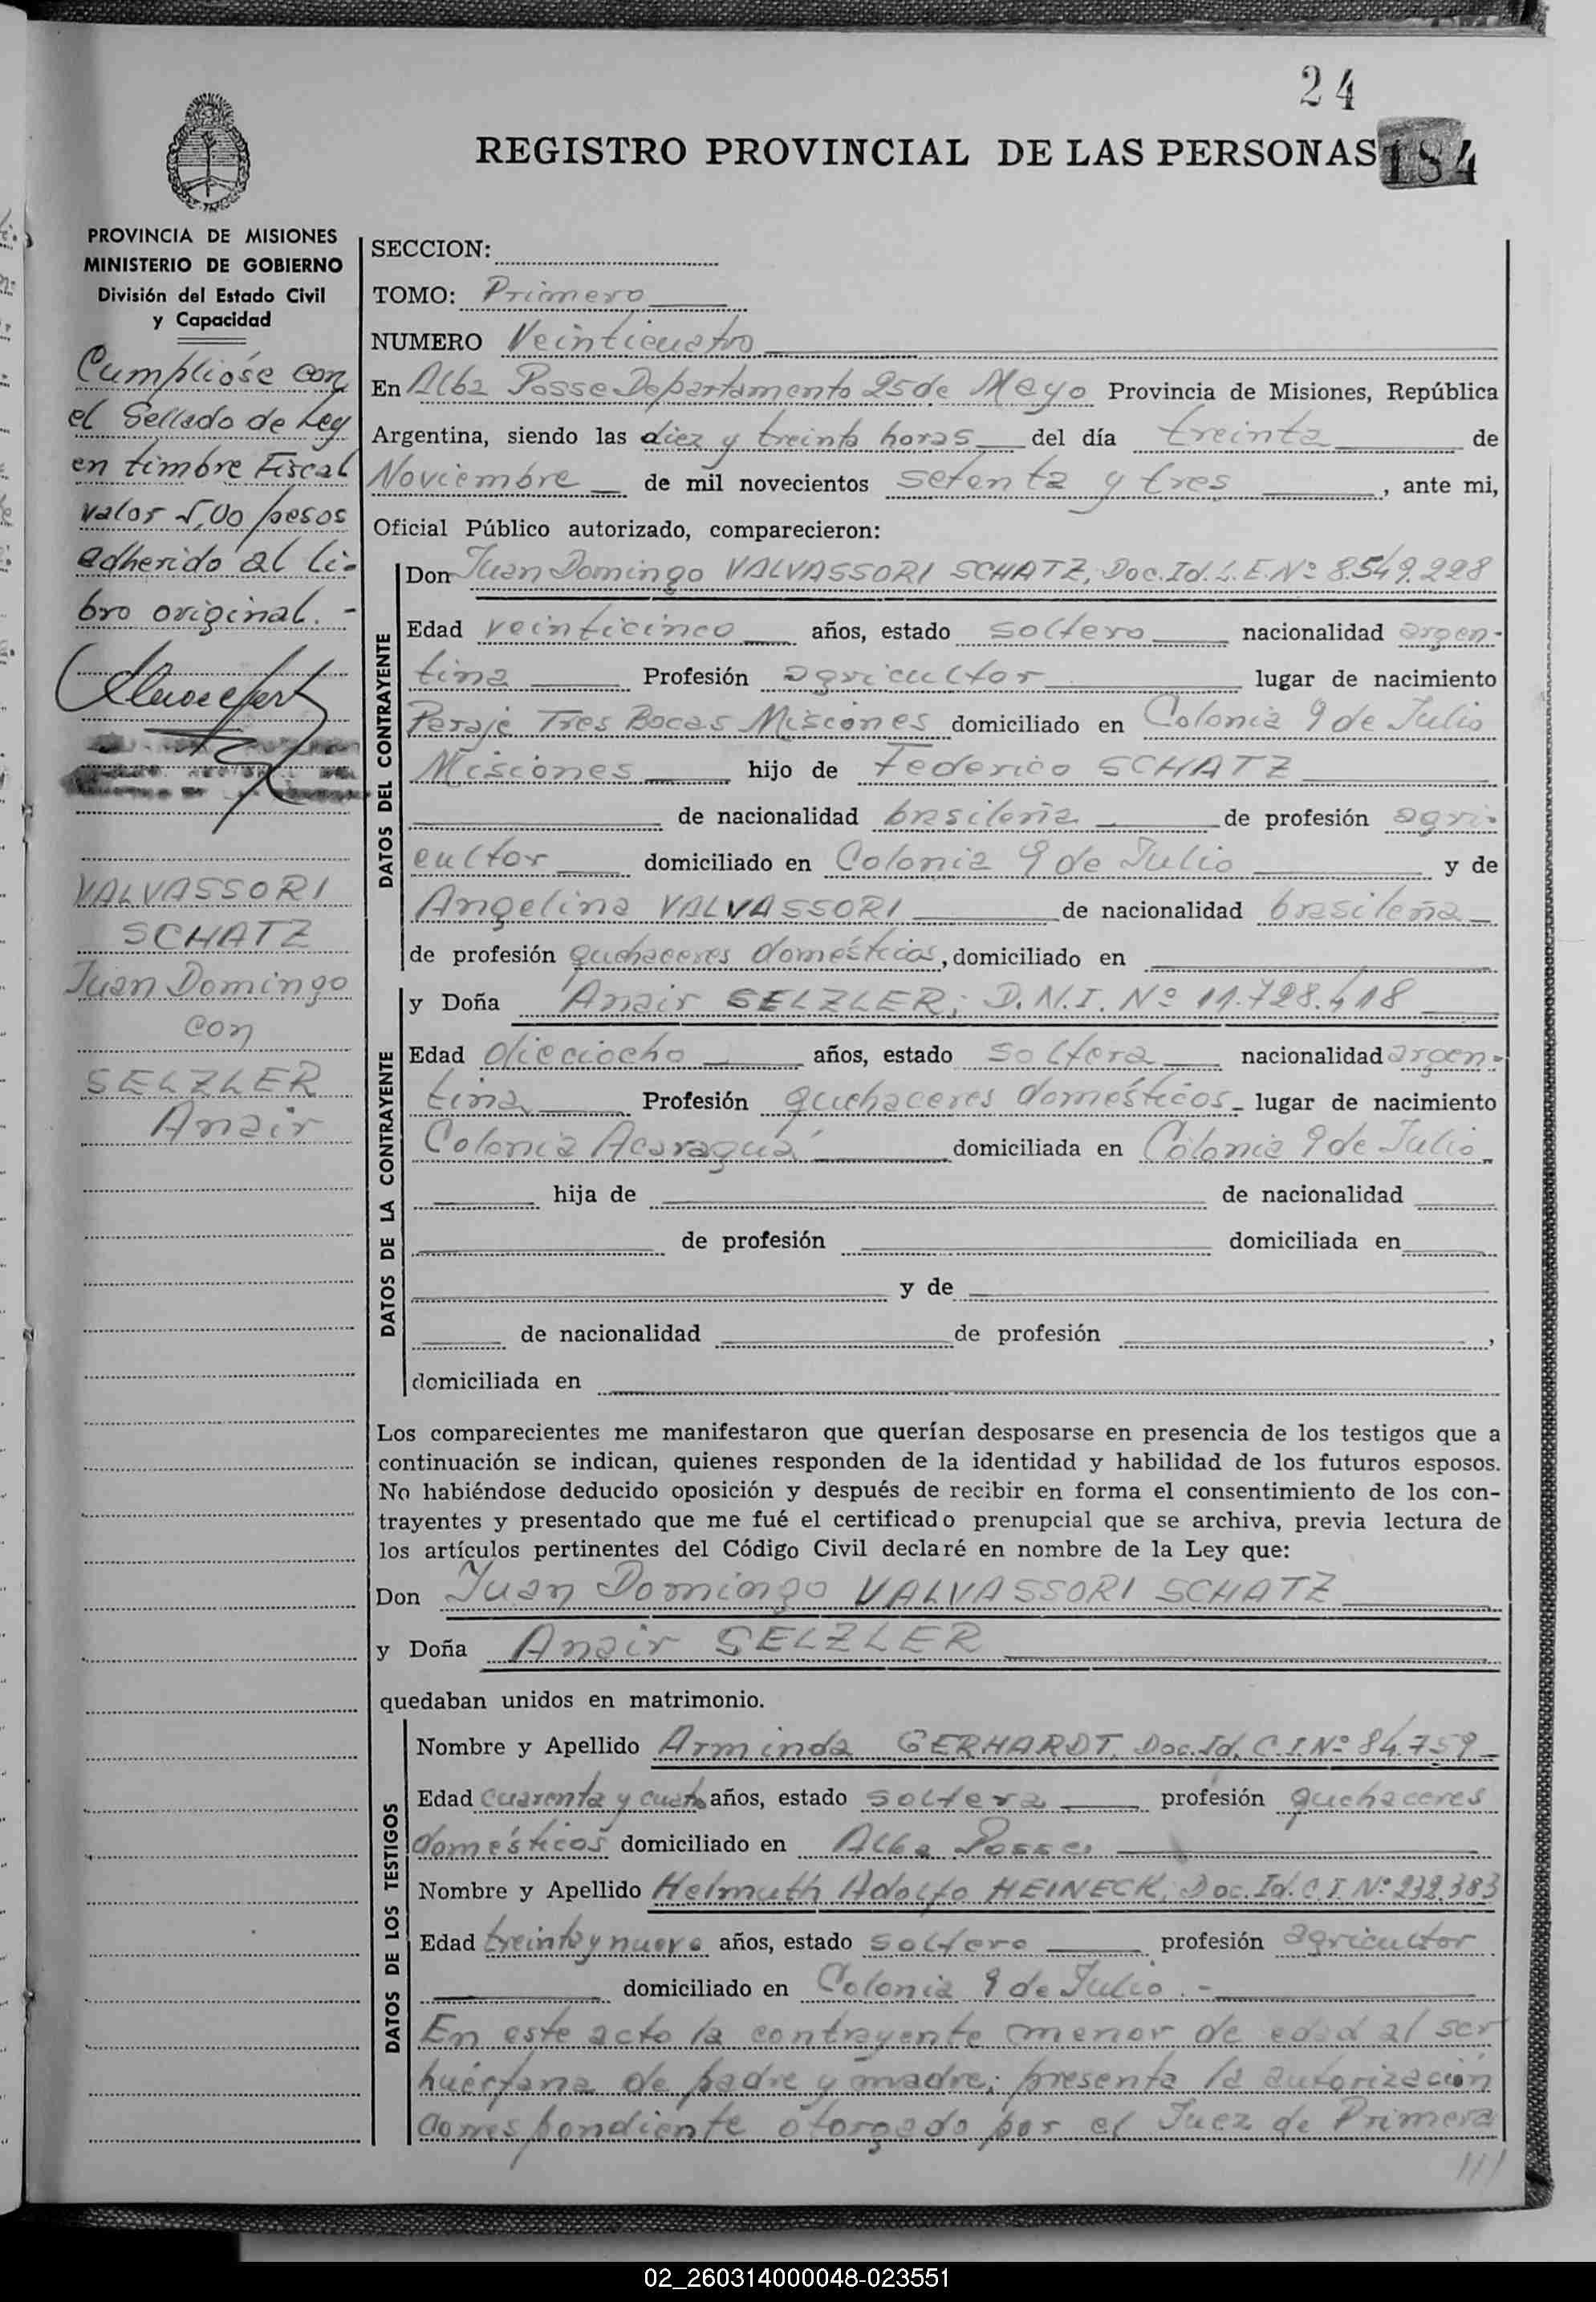 24
REGISTRO PROVINCIAL DE LAS PERSONAS 184
PROVINCIA DE MISIONES
MINISTERIO DE GOBIERNO
División del Estado Civil
y Capacidad
Cumplióse con
el Sellado de Ley
en timbre Fiscal
valor 5,00 pesos
adherido al li-
bro original. -
VALVASSORI
SCHATZ
Juan Domingo
con
SELZLER
Anair
SECCION:
TOMO: Primero
NUMERO Veinticuatro
En Alba Posse Departamento 25 de Mayo Provincia de Misiones, República
Argentina, siendo las diez y treinta horas del día treinta de
Noviembre de mil novecientos setenta y tres, ante mi,
Oficial Público autorizado, comparecieron:
DATOS DEL CONTRAYENTE
Don Juan Domingo VALVASSORI SCHATZ, Doc. Id. L.E. Nº 8.549.228
Edad veinticinco años, estado soltero nacionalidad argen-
tina Profesión agricultor lugar de nacimiento
Paraje Tres Bocas Misiones domiciliado en Colonia 9 de Julio
Misiones hijo de Federico SCHATZ
de nacionalidad brasileña de profesión agri-
cultor domiciliado en Colonia 9 de Julio y de
Angelina VALVASSORI de nacionalidad brasileña
de profesión quehaceres domésticos, domiciliado en
DATOS DE LA CONTRAYENTE
y Doña Anair SELZLER; D.N.I. Nº 11.728.418
Edad dieciocho años, estado soltera nacionalidad argen-
tina Profesión quehaceres domésticos lugar de nacimiento
Colonia Acaraguá domiciliada en Colonia 9 de Julio
hija de de nacionalidad
de profesión domiciliada en
y de
de nacionalidad de profesión ,
domiciliada en
Los comparecientes me manifestaron que querían desposarse en presencia de los testigos que a
continuación se indican, quienes responden de la identidad y habilidad de los futuros esposos.
No habiéndose deducido oposición y después de recibir en forma el consentimiento de los con-
trayentes y presentado que me fué el certificado prenupcial que se archiva, previa lectura de
los artículos pertinentes del Código Civil declaré en nombre de la Ley que:
Don Juan Domingo VALVASSORI SCHATZ
y Doña Anair SELZLER
quedaban unidos en matrimonio.
DATOS DE LOS TESTIGOS
Nombre y Apellido Arminda GERHARDT, Doc. Id. C.I. Nº 84.759
Edad cuarenta y cuatro años, estado soltera profesión quehaceres
domésticos domiciliado en Alba Posse.
Nombre y Apellido Helmuth Adolfo HEINECK, Doc. Id. C.I. Nº 232.383
Edad treinta y nueve años, estado soltero profesión agricultor
domiciliado en Colonia 9 de Julio. -
En este acto la contrayente menor de edad al ser
huérfana de padre y madre; presenta la autorización
correspondiente otorgado por el Juez de Primera
///
02_260314000048-023551